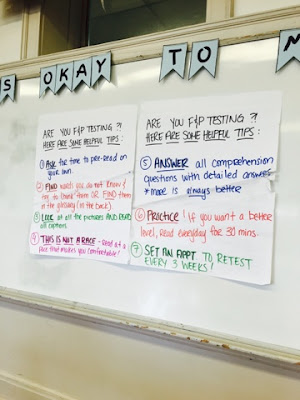 S OKAY TO M
ARE YOU F&P TESTING?!
HERE ARE SOME HELPFUL TIPS:
① ASK for time to pre-read on
your own.
② FIND words you do not know &
try to them OR FIND them
in the glossary (in the back).
③ LOOK at all the pictures AND READ
all captions.
④ THIS IS NOT A RACE - Read at a
pace that makes you comfortable!
ARE YOU F&P TESTING?!
HERE ARE SOME HELPFUL TIPS:
⑤ ANSWER all comprehension
questions with detailed answers
*more is always better
⑥ Practice! If you want a better
level, read everyday for 30 mins.
⑦ SET AN APPT TO RETEST
EVERY 3 WEEKS!